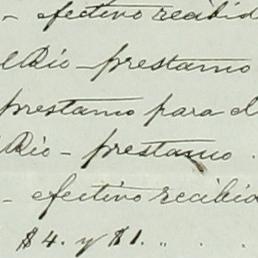 - efectivo recibid
l Rio - prestamo
prestamo para el
Rio - prestamo .
- efectivo recibid
$4. y $1. " . .